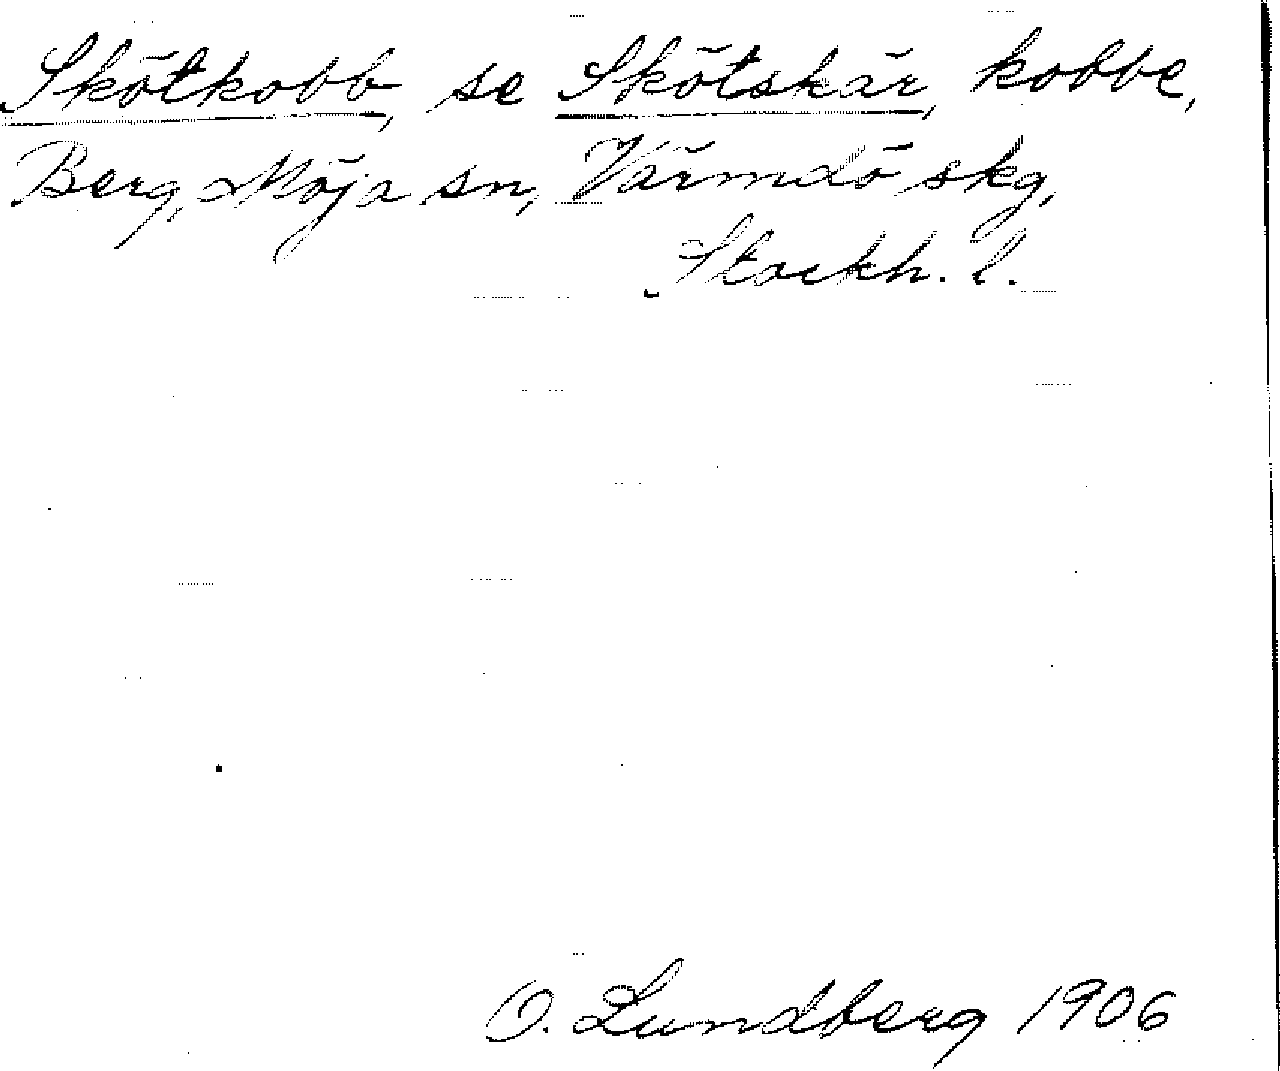 Skötkobb, se Skötskär, kobbe,
Berg, Möja sn, Värmdö skg,
Stockh. l.
O. Lundberg 1906